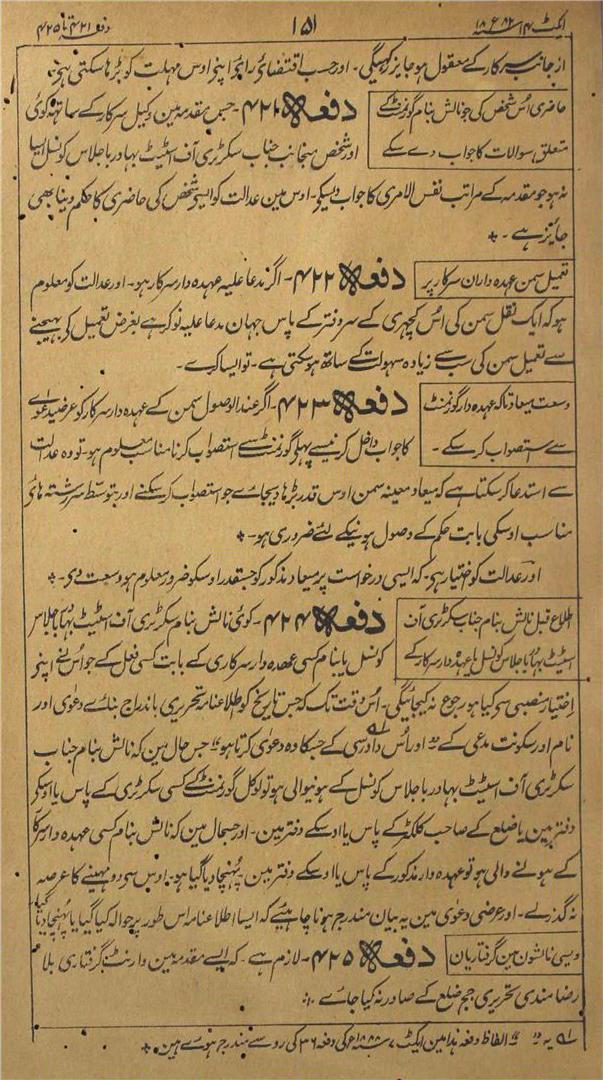 ایکٹ ۱۴ ۱۸۸۲ء
۱۵۱
دفعہ ۴۲۱ تا ۴۲۵
از جانب سرکار کے معقول ہو جایز رکھیگی۔ اور حسب اقتضای رای اپنی اوس مہلت کو بڑھا سکتی ہی
حاضری اُس شخص کی جو نالش بنام گورنمنٹ کے
متعلق سوالات کا جواب دے سکے
دفعہ ۴۲۱۔ جس مقدمہ مین وکیل سرکار کے ساتھ کوئی
اور شخص منجانب جناب سکرٹری آف اسٹیٹ بہادر باجلاس کونسل ایسا
نہ ہو جو مقدمہ کے مراتب نفس الامری کا جواب دیسکے۔ اوس مین عدالت کو ایسی شخص کی حاضری کا حکم دینا بھی
جایز ہے۔
تعمیل سمن عہدہ داران سرکار پر
دفعہ ۴۲۲۔ اگر مدعا علیہ عہدہ دار سرکار ہو۔ اور عدالت کو معلوم
ہو کہ ایک نقل سمن کی اُس کچہری کے سر دفتر کے پاس جہان مدعا علیہ نوکر ہے بغرض تعمیل کی بھیجنے
سے تعمیل سمن کی سب سے زیادہ سہولت کے ساتھ ہو سکتی ہے۔ تو ایسا کرے۔
وسعت میعاد تا کہ عہدہ دار گورنمنٹ
سے استصواب کر سکے۔
دفعہ ۴۲۳۔ اگر عند الوصول سمن کے عہدہ دار سرکار کو عرضیدعوے
کا جواب داخل کرنیسے پہلے گورنمنٹ سے استصواب کرنا مناسب معلوم ہو۔ تو وہ عدالت
سے استدعا کر سکتا ہے کہ میعاد معینہ سمن اوس قدر بڑہا دیجاے جو استصواب کر سکنے اور بتوسط سررشتہ ہای
مناسب اوسکی بابت حکم کے وصول ہونیکے لئے ضروری ہو۔
اور عدالت کو اختیار ہی۔ کہ ایسی درخواست پر میعاد مذکور کو جسقدر اوسکو ضرور معلوم ہو وسعت دی۔
اطلاع قبل نالش بنام جناب سکرٹری آف
اسٹیٹ بہادر باجلاس کونسل یا عہدہ دار سرکار کے
دفعہ ۴۲۴۔ کوئی نالش بنام سکرٹری آف اسٹیٹ بہادر باجلاس
کونسل یا بنام کسی عہدہ دار سرکاری کے بابت کسی فعل کے جو اُسنے اپنی
اختیار منصبی سی کیا ہو رجوع نہ کیجائیگی۔ اُس وقت تک کہ جس تاریخ کو اطلاعنامہ تحریری باندراج بنائے دعوٰی اور
نام اور سکونت مدعی کے اور اُس دادرسی کے جسکا وہ دعوٰی کرتا ہو جس حال مین کہ نالش بنام جناب
سکرٹری آف اسٹیٹ بہادر باجلاس کونسل کے ہونیوالی ہو تو لوکل گورنمنٹ کے کسی سکرٹری کے پاس یا اوسکی
دفتر مین یا ضلع کے صاحب کلکٹر کے پاس یا اوسکے دفتر مین۔ اور جسحال مین کہ نالش بنام کسی عہدہ دار سرکار
کے ہونے والی ہو تو عہدہ دار مذکور کے پاس یا اوسکے دفتر مین پہنچا دیا گیا ہو۔ اوس سی دو مہینے کا عرصہ
نہ گذرلے۔ اور عرضی دعوٰی مین یہ بیان مندرج ہونا چاہئیے کہ ایسا اطلاعنامہ اس طور پر حوالہ کیا گیا یا پہنچا دیا گیا
ویسی نالشون مین گرفتاریان
دفعہ ۴۲۵۔ لازم ہے۔ کہ ایسے مقدمہ مین وارنٹ گرفتاری بلا
رضامندی تحریری جج ضلع کے صادر نہ کیا جائے
یہ الفاظ دفعہ ہذا مین ایکٹ ۷ ۱۸۸۸ء کی دفعہ ۳۶ کی رو سے مندرج ہوئے ہین۔